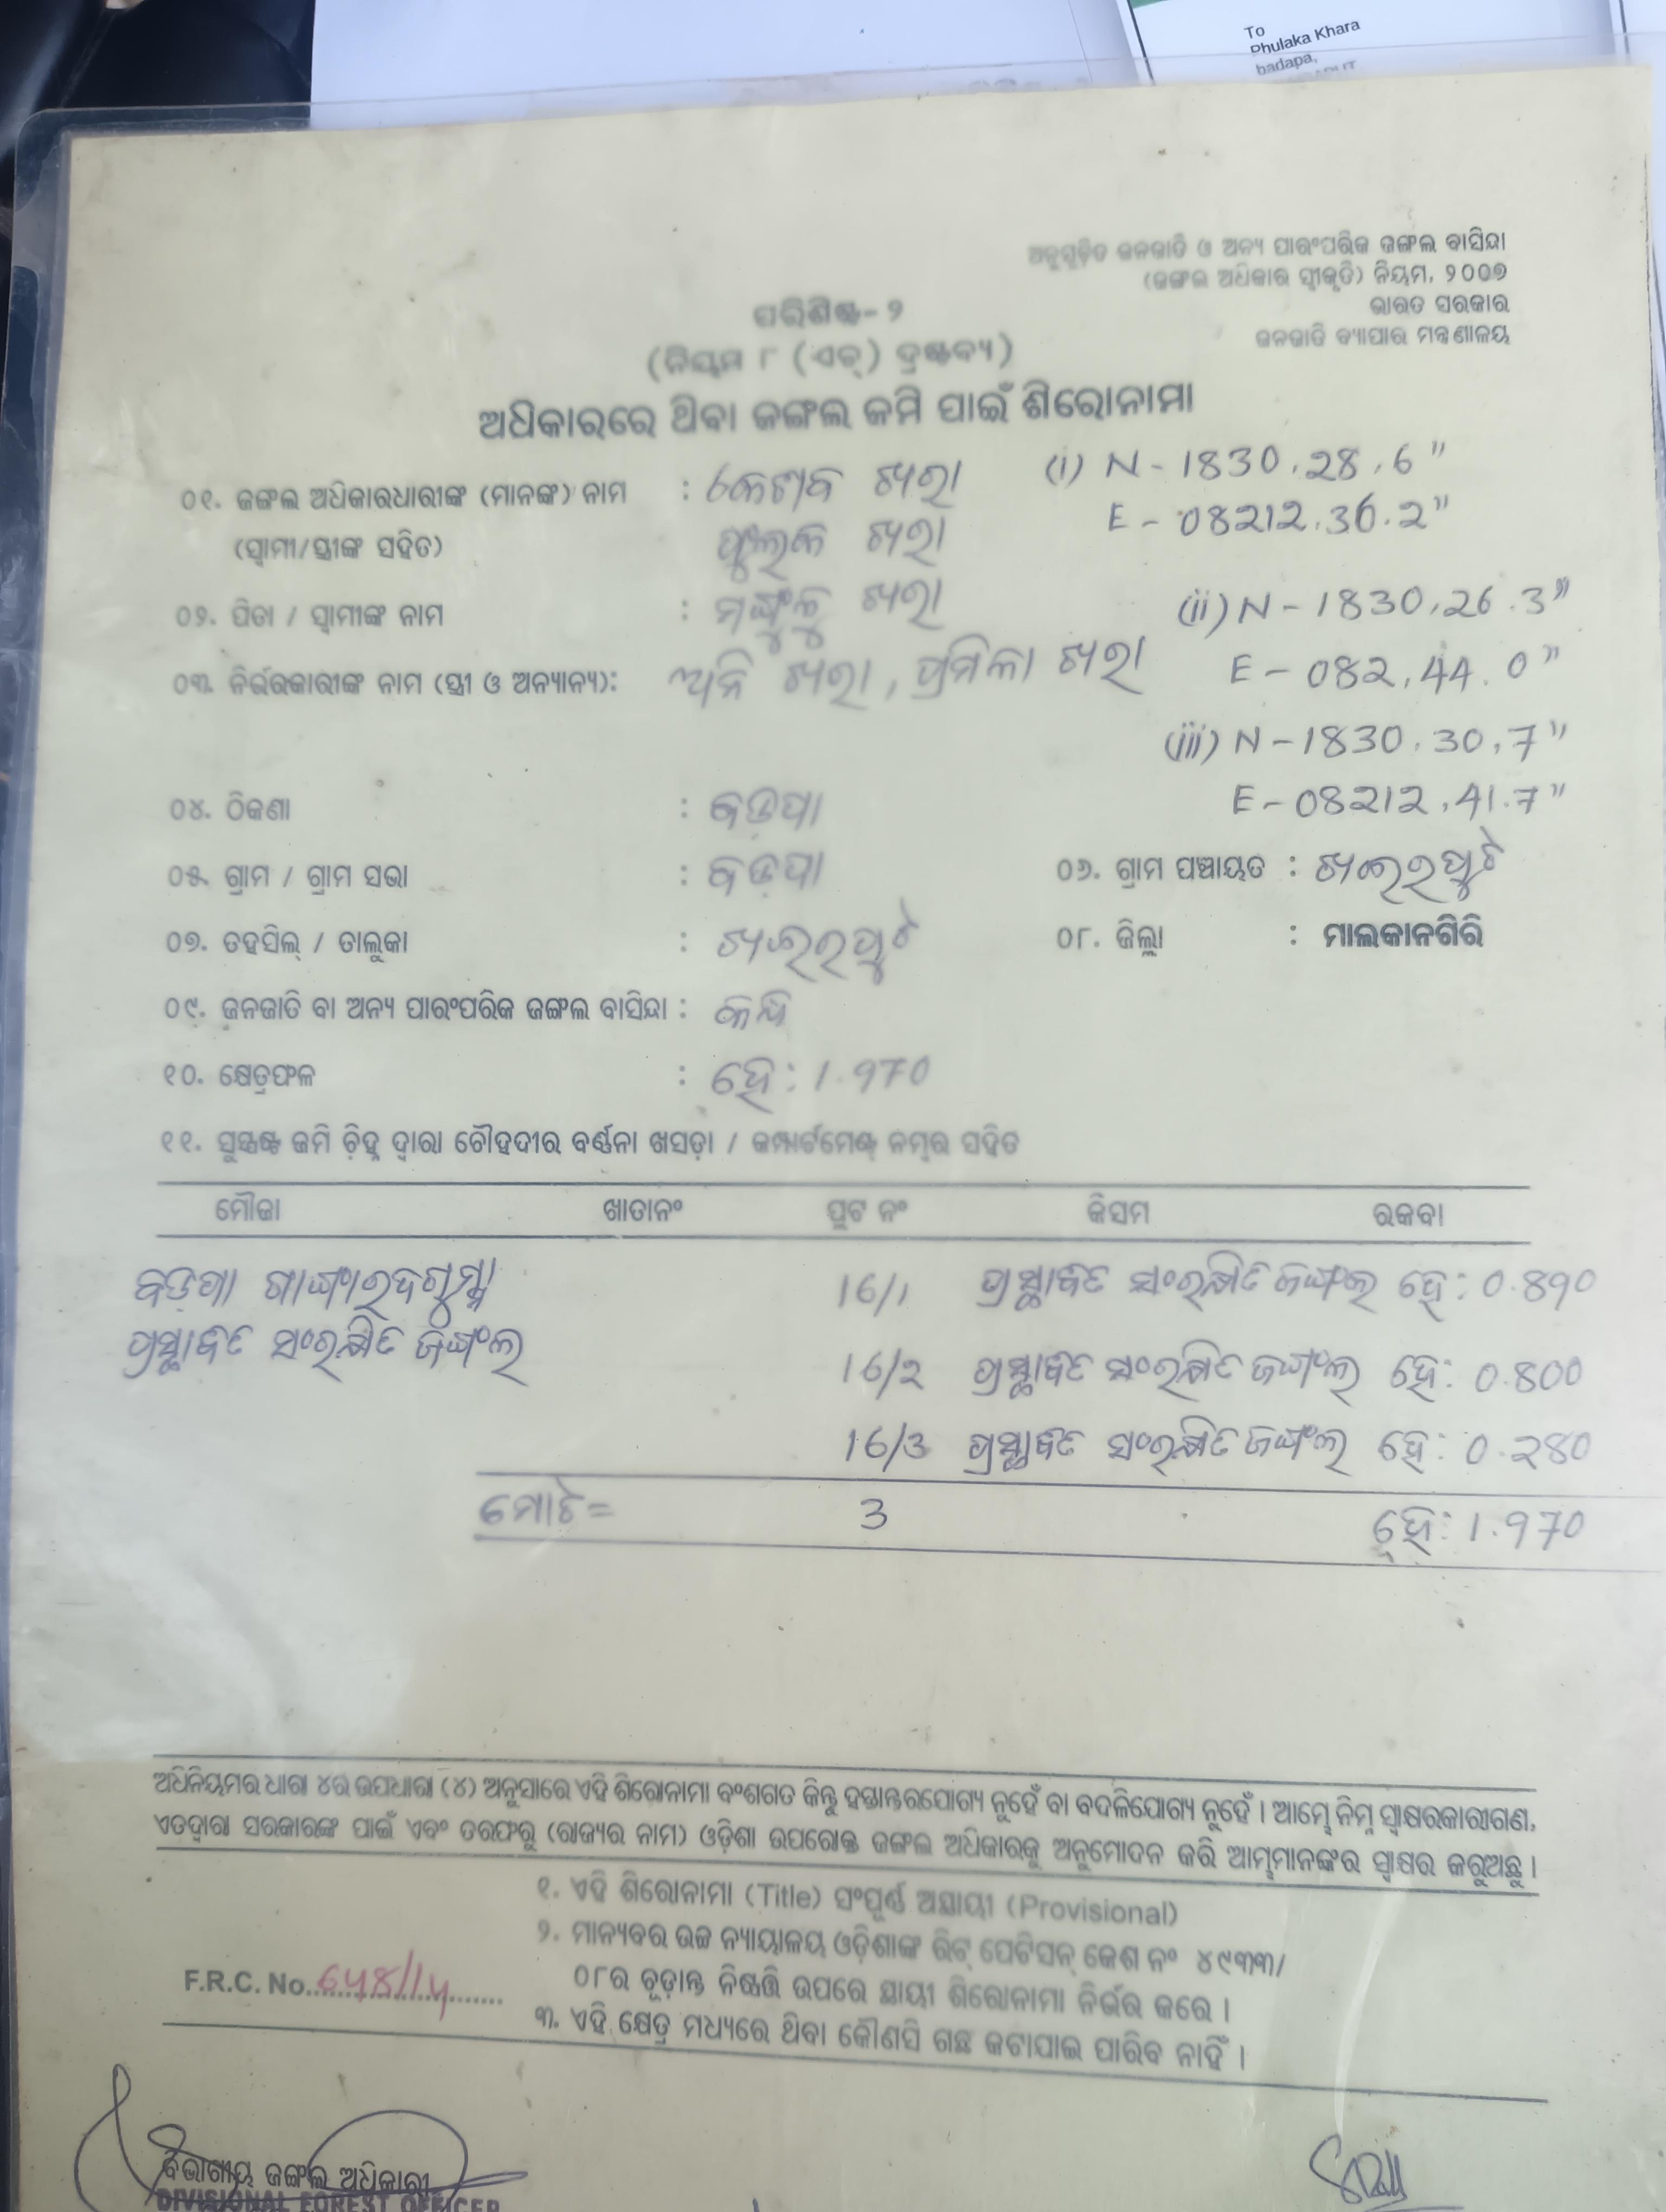 To
Phulaka Khara
badapa,
ଅନୁସୂଚିତ ଜନଜାତି ଓ ଅନ୍ୟ ପାରଂପରିକ ଜଙ୍ଗଲ ବାସିନ୍ଦା
(ଜଙ୍ଗଲ ଅଧିକାର ସ୍ୱୀକୃତି) ନିୟମ, ୨୦୦୭
ଭାରତ ସରକାର
ଜନଜାତି ବ୍ୟାପାର ମନ୍ତ୍ରଣାଳୟ
ପରିଶିଷ୍ଟ- ୨
(ନିୟମ ୮ (ଏଚ୍) ଦ୍ରଷ୍ଟବ୍ୟ)
ଅଧିକାରରେ ଥିବା ଜଙ୍ଗଲ ଜମି ପାଇଁ ଶିରୋନାମା
୦୧. ଜଙ୍ଗଲ ଅଧିକାରଧାରୀଙ୍କ (ମାନଙ୍କ) ନାମ : କେଶବ ଖରା (i) N - 1830.28.6"
E - 08212.36.2"
(ସ୍ୱାମୀ/ସ୍ତ୍ରୀଙ୍କ ସହିତ) ଫୁଲକ ଖରା
୦୨. ପିତା / ସ୍ୱାମୀଙ୍କ ନାମ : ଖରା (ii) N - 1830.26.3"
୦୩. ନିର୍ଭରକାରୀଙ୍କ ନାମ (ସ୍ତ୍ରୀ ଓ ଅନ୍ୟାନ୍ୟ): ଅନି ଖରା, ପ୍ରମିଳା ଖରା E - 082.44.0"
(iii) N - 1830.30.7"
E - 08212.41.7"
୦୪. ଠିକଣା : ବଡପା
୦୫. ଗ୍ରାମ / ଗ୍ରାମ ସଭା : ବଡପା ୦୬. ଗ୍ରାମ ପଞ୍ଚାୟତ : ଖଇରପୁଟ
୦୭. ତହସିଲ୍ / ତାଲୁକା : ଖଇରପୁଟ ୦୮. ଜିଲ୍ଲା : ମାଲକାନଗିରି
୦୯. ଜନଜାତି ବା ଅନ୍ୟ ପାରଂପରିକ ଜଙ୍ଗଲ ବାସିନ୍ଦା : କନ୍ଧ
୧୦. କ୍ଷେତ୍ରଫଳ : ହେ: 1.970
୧୧. ସୁସ୍ପଷ୍ଟ ଜମି ଚିହ୍ନ ଦ୍ୱାରା ଚୌହଦୀର ବର୍ଣ୍ଣନା ଖସଡ଼ା / କମ୍ପାର୍ଟମେଣ୍ଟ ନମ୍ବର ସହିତ
ମୌଜା ଖାତାନଂ ପ୍ଲଟ ନଂ କିସମ ରକବା
ବଡପା 16/1 ପ୍ରସ୍ତାବିତ ସଂରକ୍ଷିତ ଜଙ୍ଗଲ ହେ: 0.890
ପ୍ରସ୍ତାବିତ ସଂରକ୍ଷିତ ଜଙ୍ଗଲ
16/2 ପ୍ରସ୍ତାବିତ ସଂରକ୍ଷିତ ଜଙ୍ଗଲ ହେ: 0.800
16/3 ପ୍ରସ୍ତାବିତ ସଂରକ୍ଷିତ ଜଙ୍ଗଲ ହେ: 0.280
ମୋଟ= 3 ହେ: 1.970
ଅଧିନିୟମର ଧାରା ୪ର ଉପଧାରା (୪) ଅନୁସାରେ ଏହି ଶିରୋନାମା ବଂଶଗତ କିନ୍ତୁ ହସ୍ତାନ୍ତରଯୋଗ୍ୟ ନୁହେଁ ବା ବଦଳିଯୋଗ୍ୟ ନୁହେଁ । ଆମ୍ଭେ ନିମ୍ନ ସ୍ୱାକ୍ଷରକାରୀଗଣ,
ଏତଦ୍ଦ୍ୱାରା ସରକାରଙ୍କ ପାଇଁ ଏବଂ ତରଫରୁ (ରାଜ୍ୟର ନାମ) ଓଡ଼ିଶା ଉପରୋକ୍ତ ଜଙ୍ଗଲ ଅଧିକାରକୁ ଅନୁମୋଦନ କରି ଆମ୍ଭମାନଙ୍କର ସ୍ୱାକ୍ଷର କରୁଅଛୁ ।
୧. ଏହି ଶିରୋନାମା (Title) ସଂପୂର୍ଣ୍ଣ ଅସ୍ଥାୟୀ (Provisional)
୨. ମାନ୍ୟବର ଉଚ୍ଚ ନ୍ୟାୟାଳୟ ଓଡ଼ିଶାଙ୍କ ରିଟ୍ ପେଟିସନ୍ କେଶ ନଂ ୪୯୩୩/
୦୮ର ଚୂଡ଼ାନ୍ତ ନିଷ୍ପତ୍ତି ଉପରେ ସ୍ଥାୟୀ ଶିରୋନାମା ନିର୍ଭର କରେ ।
F.R.C. No.
୩. ଏହି କ୍ଷେତ୍ର ମଧ୍ୟରେ ଥିବା କୌଣସି ଗଛ କଟାଯାଇ ପାରିବ ନାହିଁ ।
ବିଭାଗୀୟ ଜଙ୍ଗଲ ଅଧିକାରୀ
DIVISIONAL FOREST OFFICER